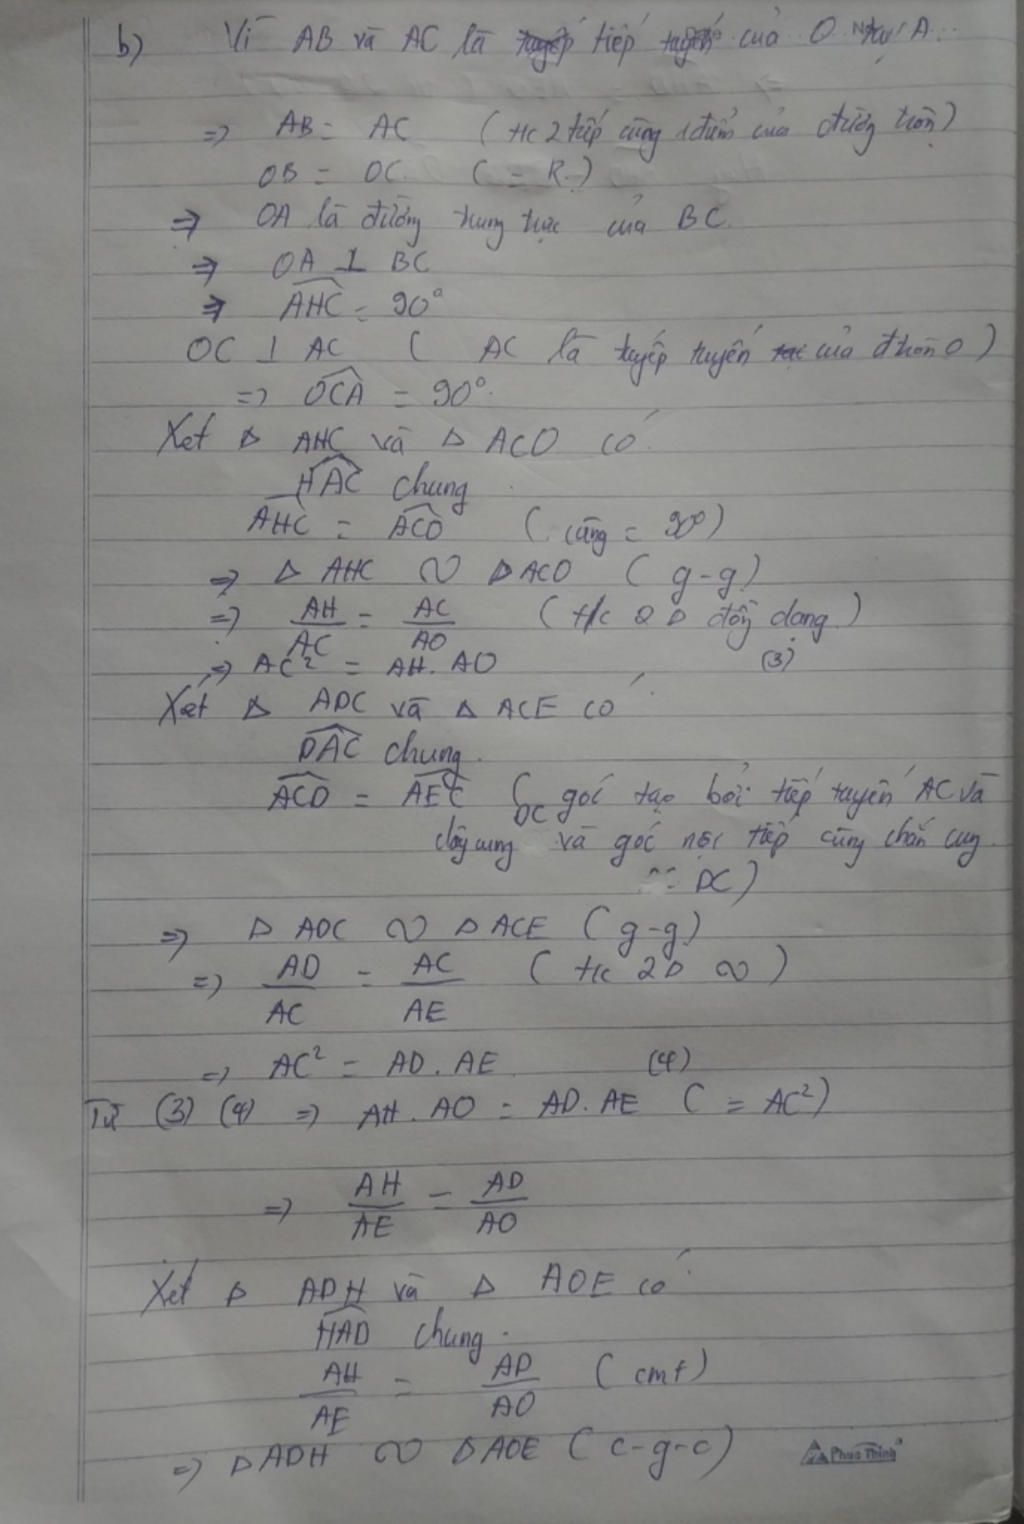 b) Vì AB và AC là tiếp tuyến của O từ A
=> AB = AC (t/c 2 tiếp cùng 1 điểm của đường tròn)
OB = OC ( = R )
=> OA là đường trung trực của BC.
=> OA ⊥ BC
=> \widehat{AHC} = 90°
OC ⊥ AC ( AC là tuyếp tuyến của đ tròn O )
=> \widehat{OCA} = 90°.
Xét Δ AHC và Δ ACO có
\widehat{HAC} chung
\widehat{AHC} = \widehat{ACO} ( cùng = 90°)
=> Δ AHC ∽ Δ ACO ( g-g)
=> AH/AC = AC/AO ( t/c 2 Δ đồng dạng )
=> AC² = AH. AO (3)
Xét Δ ADC và Δ ACE có
\widehat{DAC} chung.
\widehat{ACD} = \widehat{AEC} ( góc tạo bởi tiếp tuyến AC và
dây cung DC và góc nội tiếp cùng chắn cung
DC)
=> Δ ADC ∽ Δ ACE ( g-g)
=> AD/AC = AC/AE ( t/c 2Δ ∽ )
=> AC² = AD. AE (4)
Từ (3) (4) => AH. AO = AD. AE ( = AC²)
=> AH/AE = AD/AO
Xét Δ ADH và Δ AOE có
\widehat{HAD} chung.
AH/AE = AD/AO ( cmt)
=> Δ ADH ∽ Δ AOE ( c-g-c)
Phuc Thinh